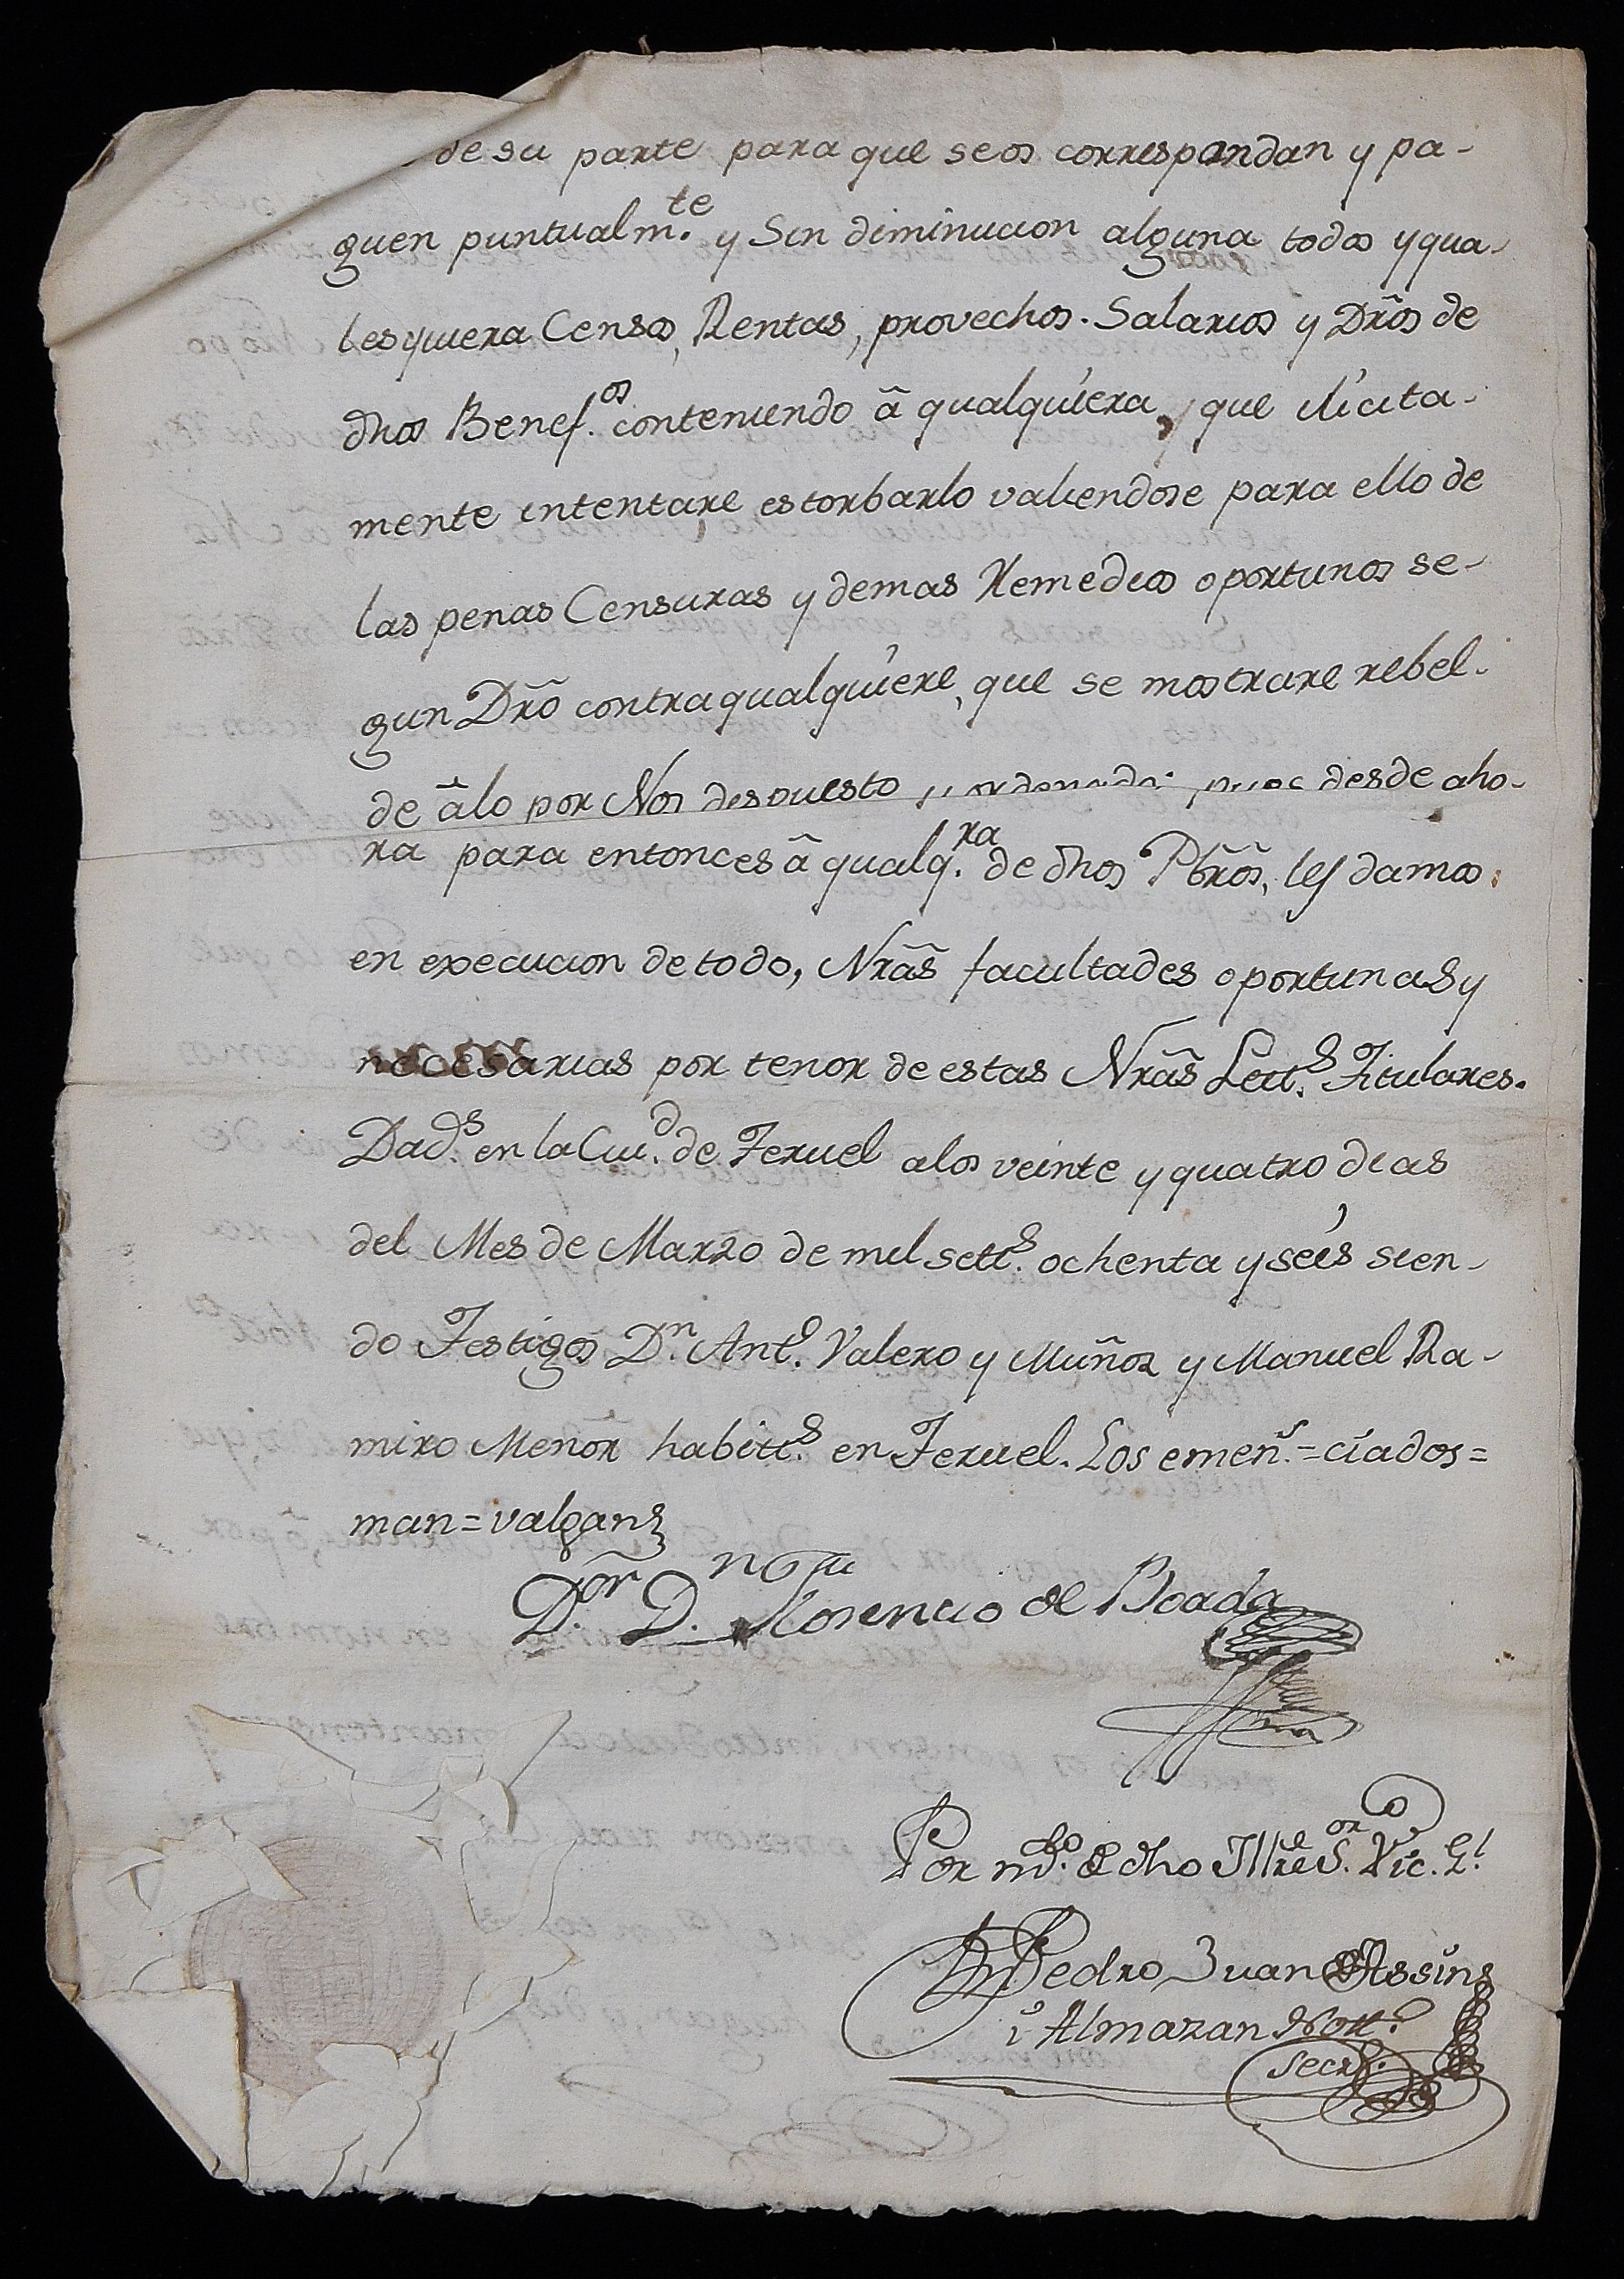 de su parte para que seos correspondan y pa-
guen puntualm.te y Sin diminucion alguna todos y qua-
lesquiera Censos, Rentas, provechos. Salarios y Drõs de
dhos Benef.os conteniendo â qualquiera, que ilicita-
mente intentare estorbarlo valiendose para ello de
las penas Censuras y demas Remedios oportunos se-
gun Drõ contra qualquiere, que se mostrare rebel-
de âlo por Nos dispuesto y ordenado; pues desde aho-
ra para entonces â qualq.ra de dhos Pbrõs, les damos
en execucion de todo, Nrãs facultades oportunas y
necesarias por tenor de estas Nrãs Lett.s Titulares.
Dad.s en la Ciu.d de Teruel alos veinte y quatro dias
del Mes de Marzo de mil sett.s ochenta y seis sien-
do Testigos D.n Ant.o Valero y Muñoz y Manuel Ra-
miro Menor habitt.s en Teruel. Los emen.s = ciados =
man = valgan
D.or D.n Florencio de Boada
Por m.do de dho Illre S.or Vic. G.l
Pedro Juan Assins
i Almazan Nott.o
Secr.o